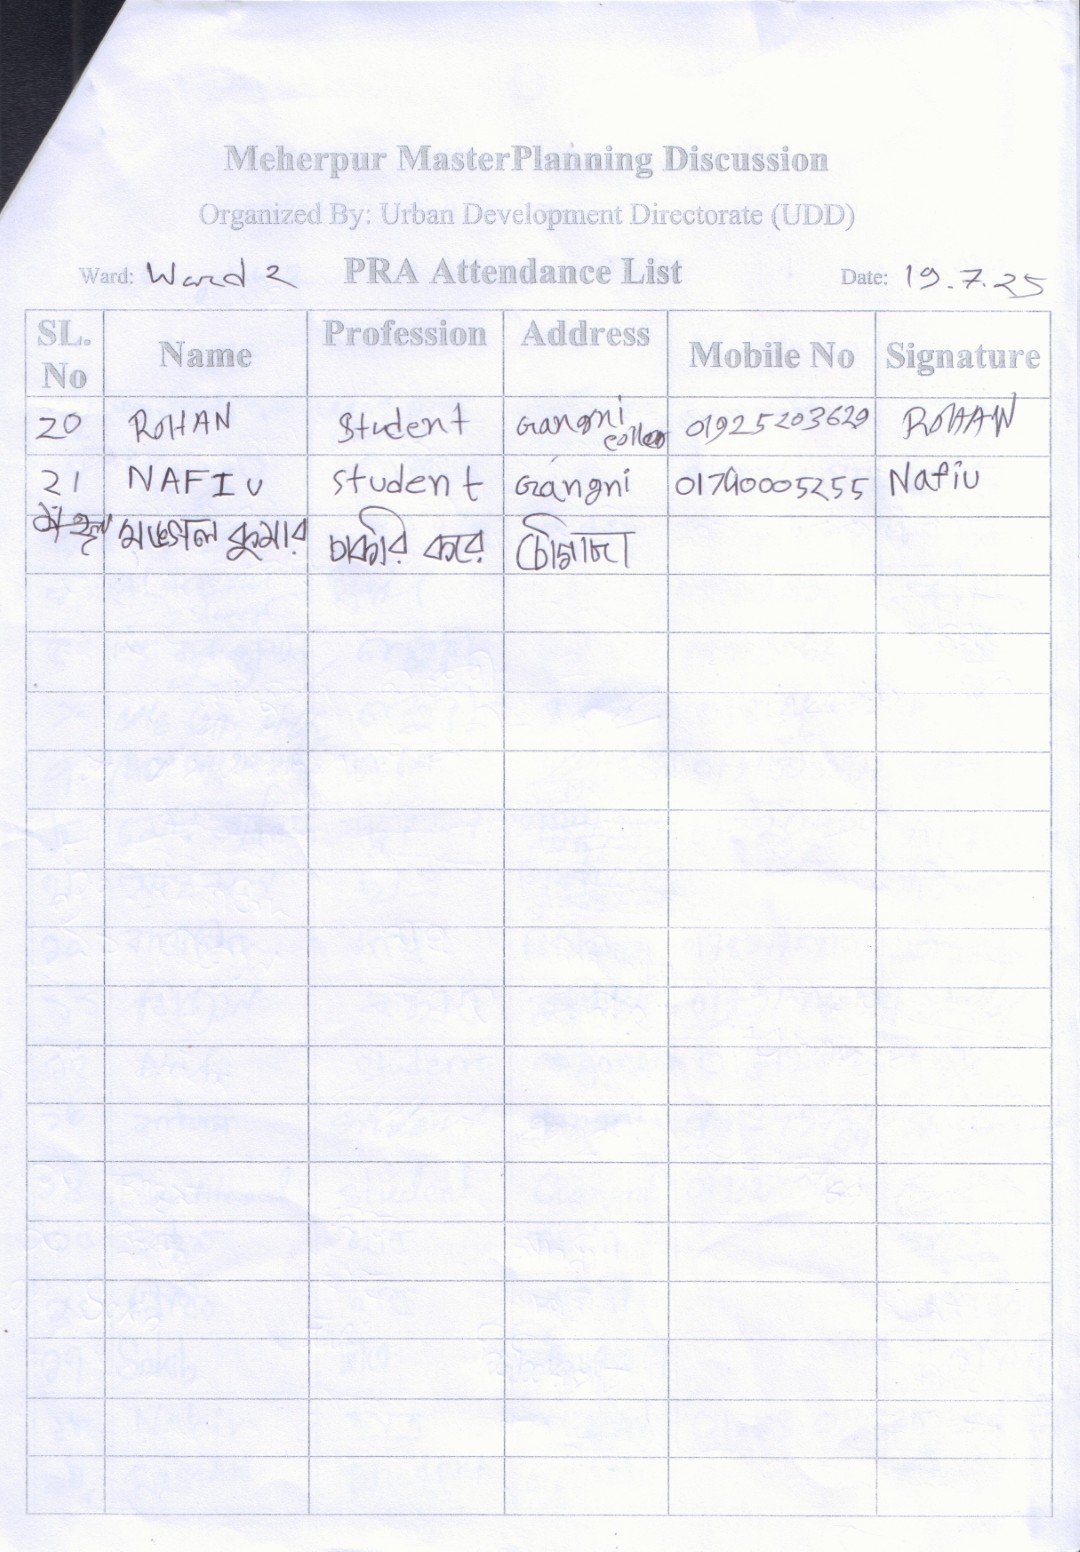 Meherpur MasterPlanning Discussion
Organized By: Urban Development Directorate (UDD)
Ward: Ward 2 PRA Attendance List Date: 19.7.25
SL. No Name Profession Address Mobile No Signature
20 ROHAN Student Gangni 01925203629 ROHAN
21 NAFIU student Gangni 01740005255 Nafiu
কুমার চাকরি করে